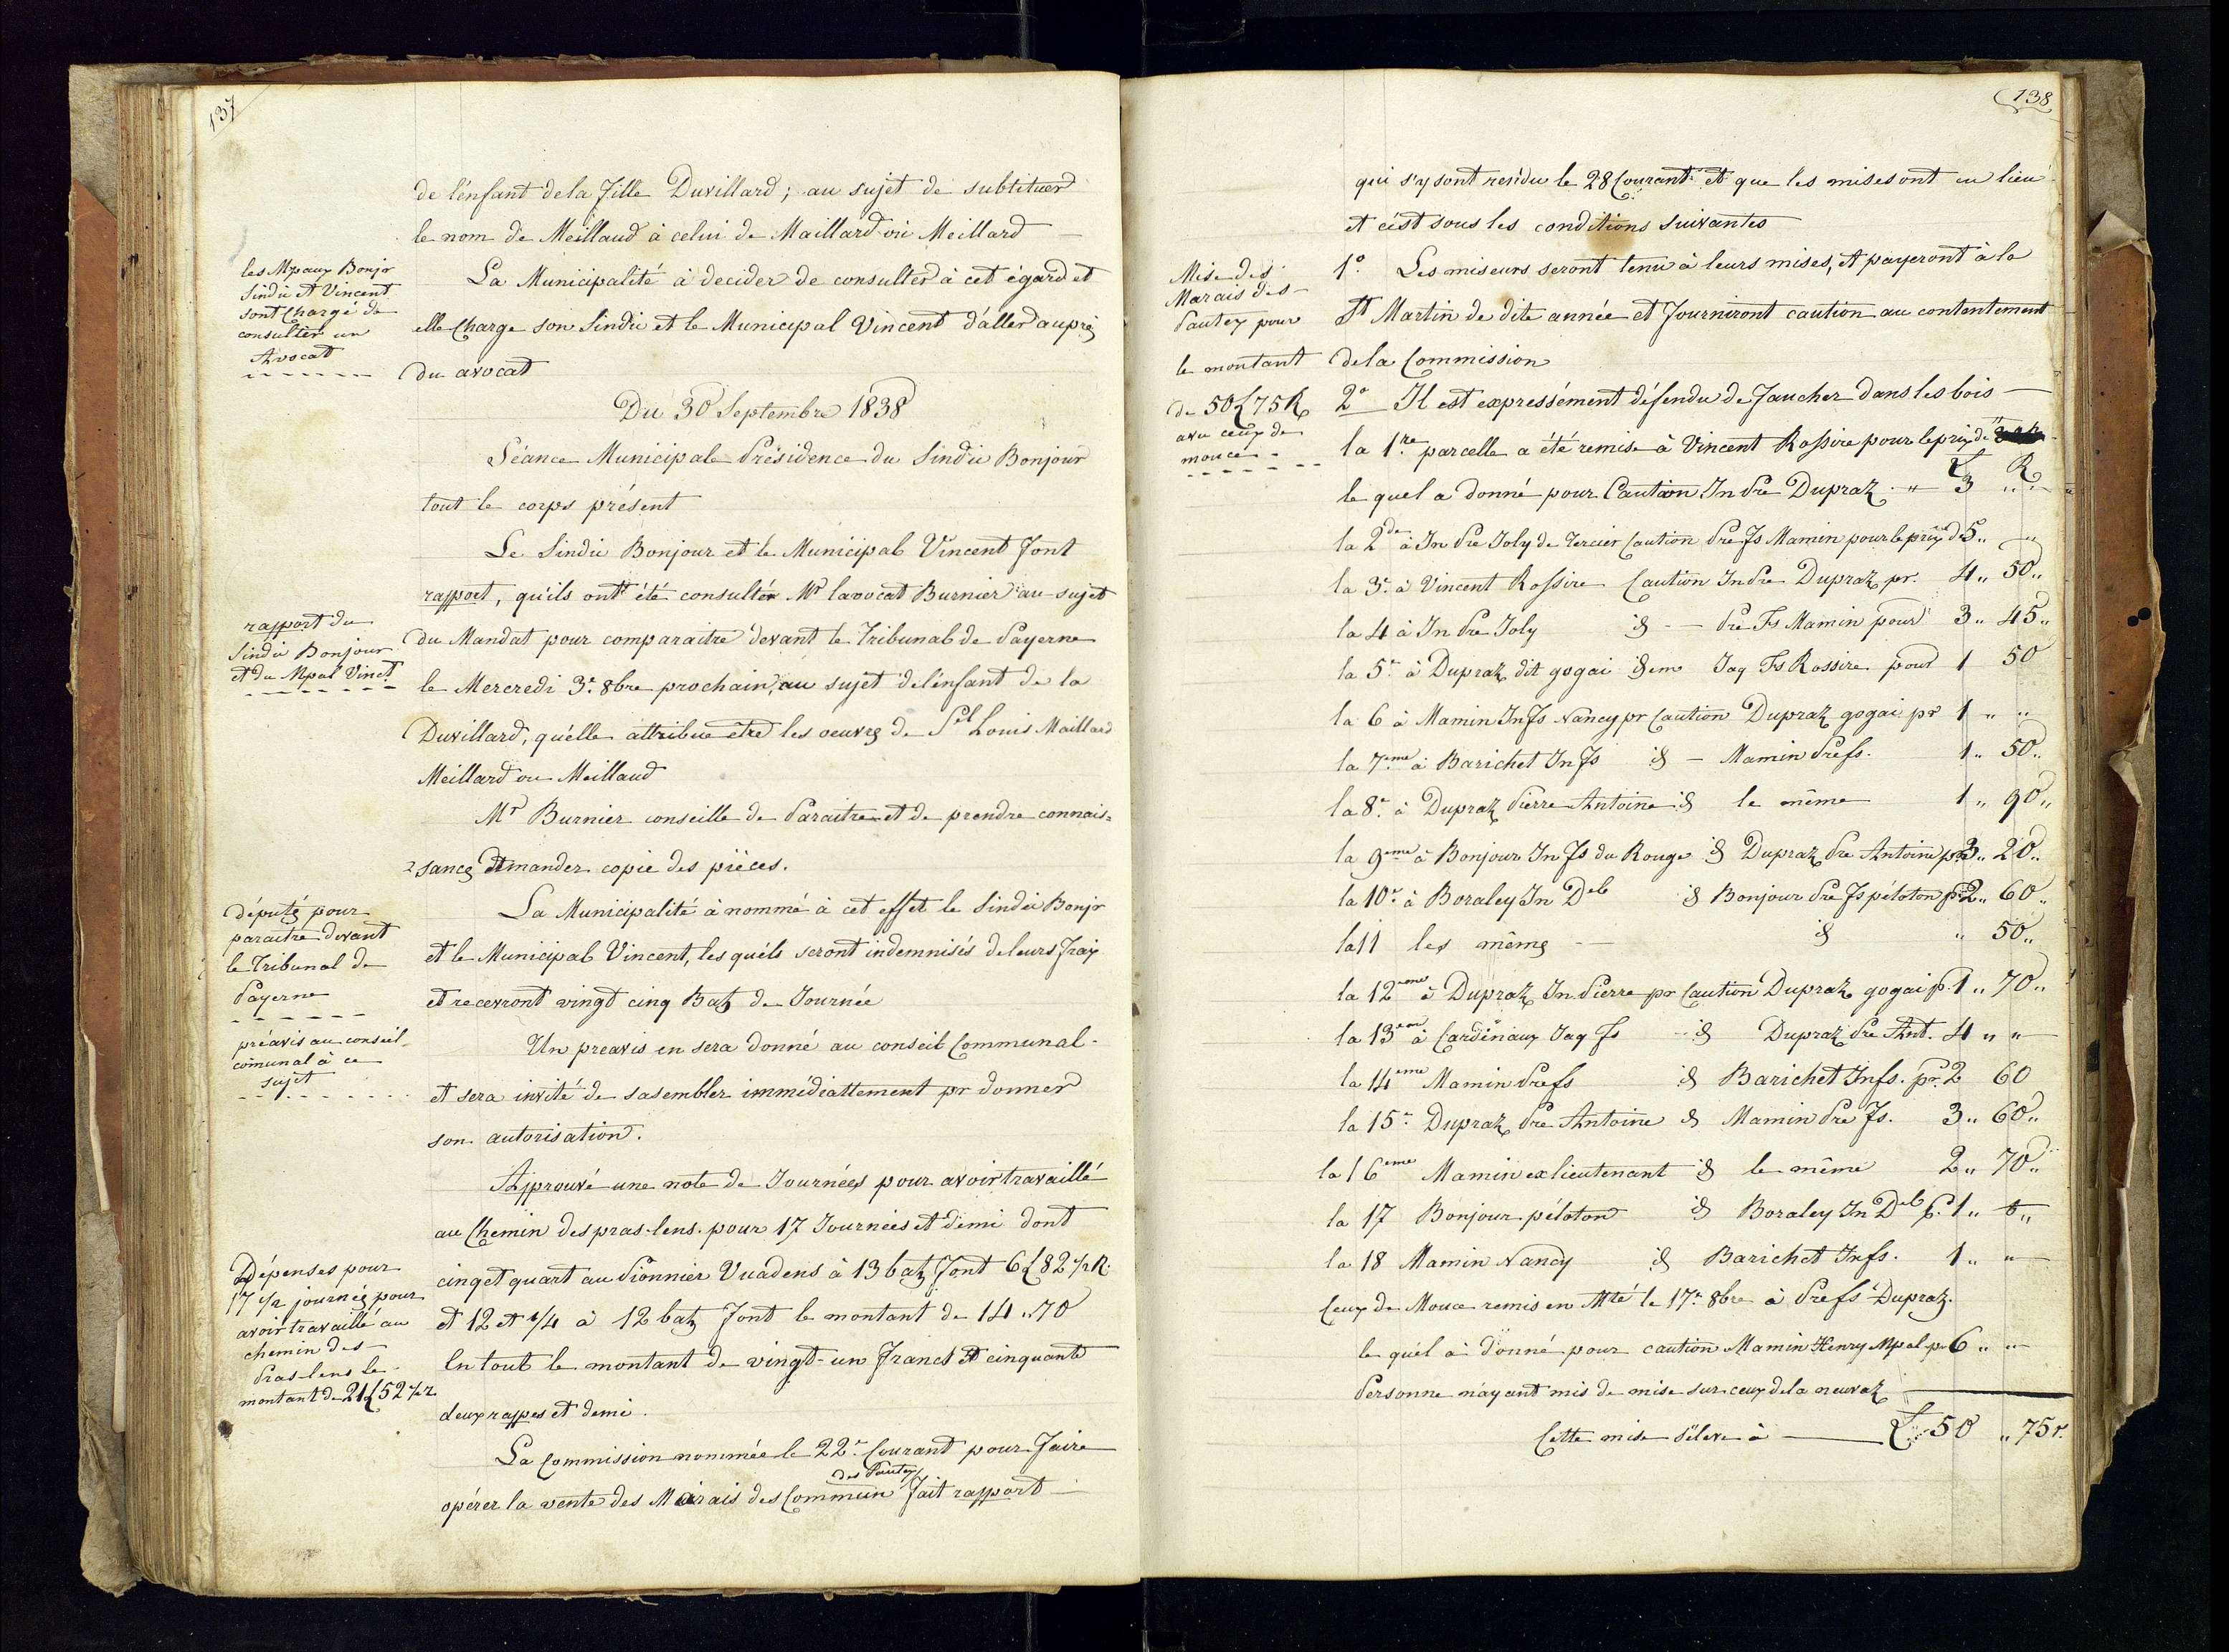 137
de l'énfant de la fille Duvillard ; au sujet de subtituer
le nom de Meillaud à celui de Maillard ou Meillard
les Mpaux Bonjr
Sindic et Vincent
sont Chargé de
consulter un
Avocat
La Municipalité à decider de consulter à cet égard et
elle Charge son Sindic et le Municipal Vincent d'áller auprès
du avocat
Du 30 Septembre 1838
Séance Municipale Présidence du Sindic Bonjour
tout le corps présent
Le Sindic Bonjour et le Municipal Vincent font
rapport, qu'ils ont été consulter Mr lavocat Burnier au sujet
rapport du
Sindic Bonjour
et du Mpal Vinct
du Mandat pour comparaitre devant le Tribunal de Payerne
le Mercredi 3e. 8bre prochain, au sujet de l'énfant de la
Duvillard, qu'élle attribue être les oeuvres de Sl Louis Maillard
Meillard ou Meillaud
Mr Burnier conseille de Paraitre et de prendre connais=
sances demander copie des piéces.
députés pour
paraitre devant
le Tribunal de
Payerne
La Municipalité à nommé à cet effet le Sindic Bonjr
et le Municipal Vincent, les quéls seront indemnisés de leurs fraix
et recevront vingt cinq Batz de Journée
préavis au conseil
comunal à ce
sujet
Un preavis en sera donné au conseil Communal
et sera invité de sasembler immédiattement pr donner
son autorisation.
Approuvé une note de Journées pour avoir travaillé
au Chemin des pras-lens pour 17 Journées et demi dont
Dépenses pour
17 1/2 journés pour
avoir travaillé au
chemin des
Pras-lens le
montant de 21£ 52 1/2 r
cinq et quart au Pionnier Vuadens à 13 batz font 6£ 82 1/2 R.
et 12 et 1/4 à 12 batz font le montant de 14 „ 70
En tout le montant de vingt-un francs et cinquante
deux rappes et demi.
La Commission nommée le 22e. Courant pour faire
des Pautex
opérer la vente des Marais des Commun fait rapport
138
qui s'y sont residu le 28 Courant et que les mises ont eu lieu
et c'ést sous les conditions suivantes
Mise des
Marais des
Pautex pour
le montant
de 50£ 75 R
avec ceux de
moucé
1o. Les miseurs seront tenu à leurs mises, et payeront à la
St Martin de dite année et fourniront caution au contentement
de la Commission
2o Il est expressément défendu de faucher dans les bois
la 1re. parcelle a été remise à Vincent Rossire pour le prix de
£ R
le quel a donné pour Caution Jn Pre Dupraz „ 3 „
la 2de à Jn Pre Joly de Tercier Caution Pre fs Mamin pour le prix de 5 „ „
la 3e. à Vincent Rossire Caution Jn Pre Dupraz pr. 4 „ 50 „
la 4 à Jn Pre Joly id - Pre Fs Mamin pour 3 „ 45 „
la 5e. à Dupraz dit gogai idem Jaq Fs Rossire pour 1 50
la 6 à Mamin Jn fs Nancy pr Caution Dupraz gogai pr 1 „ „
la 7eme à Barichet Jn fs id - Mamin Pre fs. 1 „ 50 „
la 8e. à Dupraz Pierre Antoine id le même 1 „ 90 „
la 9eme à Bonjour Jn fs du Rouge id Dupraz Pre Antoine pr 3 „ 20 „
la 10e. à Boraley Jn Del id Bonjour Pre fs péloton pr 2 „ 60 „
la 11 les mêmes id „ 50 „
la 12eme à Dupraz Jn Pierre pr Caution Dupraz gogai p. 1 „ 70 „
la 13eme à Cardinaux Jaq fs id Dupraz Pre Ant. 4 „ „
la 14eme Mamin Pre fs id Barichet Jn fs. pr. 2 60
la 15e. Dupraz Pre Antoine id Mamin Pre fs. 3 „ 60 „
la 16eme Mamin ex lieutenant id le même 2 „ 70 „
la 17 Bonjour péloton id Boraley Jn Del p. 1 „ 0 „
la 18 Mamin Nancy id Barichet Jn fs. 1 „ „
Ceux de Mouce remis en Mté le 17e. 8bre à Pre fs Dupraz.
le quél à donné pour caution Mamin Henry Mpal pr 6 „ „
Personne n'ayant mis de mise sur ceux de la neuvaz
Cette mise s'éleve à £ 50 „ 75 r.